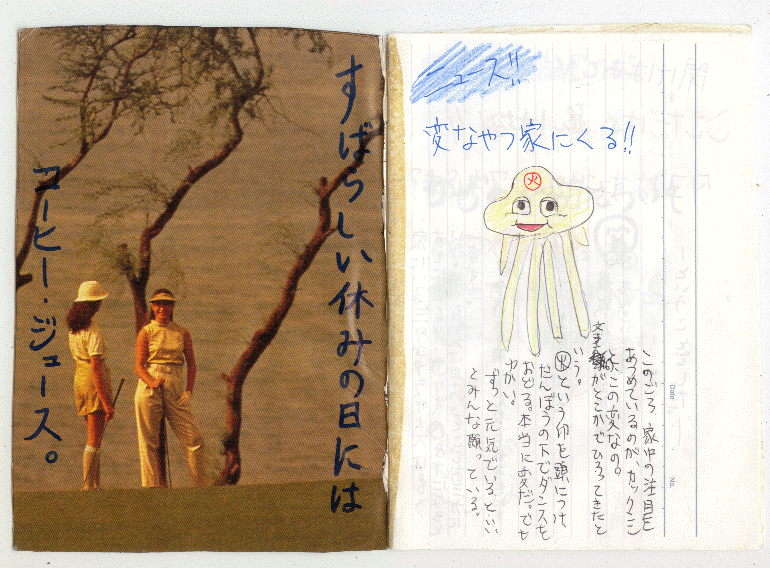 すばらしい休みの日には
コーヒー・ジュース。
ニュース!!
変なやつ家にくる!!
火
このごろ家中の注目を
あつめているのが、
この変なの。
がどこかでひろってきたと
いう。
㊋という印を頭につけ、
だんぼうの下でダンスを
おどる。本当に変だ。でも
かわい。
ずっと元気でいるといい
とみんな願っている。
Date
No.